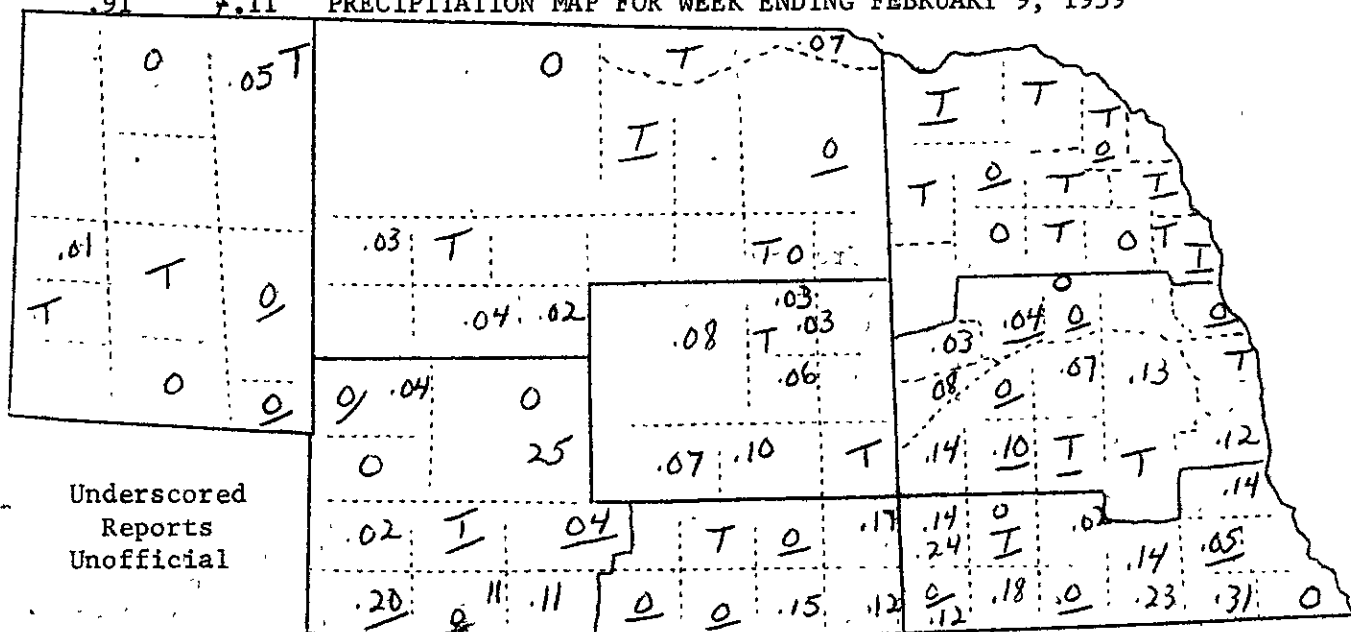 .91 4.11 PRECIPITATION MAP FOR WEEK ENDING FEBRUARY 9, 1959
0 .05 T 0 T .07
T T T
T 0 0
T 0 T T
.01 .03 T T 0 0 T 0 T T
T T 0
.04 .02 .03 0
.08 T .03 .03 .04 0 0
0 .04 0 .06 .07 .13 T
0 0 .08 0
0 25 .07 .10 T .14 .10 T T .12
Underscored
Reports
Unofficial
.14
.02 T 04 T 0 .17 .14 0
.24 T .14 .05
.20 0 11 .11 0 0 .15 .12 0 .18 .0 .23 .31 0
.12